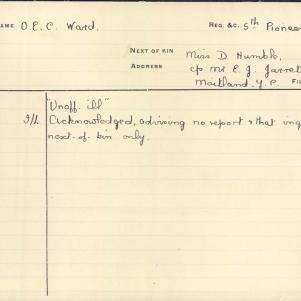 NAME O.E.C. Ward. REG. &C. 5th Pionee
NEXT OF KIN Miss D. Humble,
ADDRESS c/o Mr E. J. Jarrett
Maitland, Y.P. FI
"Unoff. ill"
2/1 Acknowledged, advising no report & that inq
next-of-kin only.